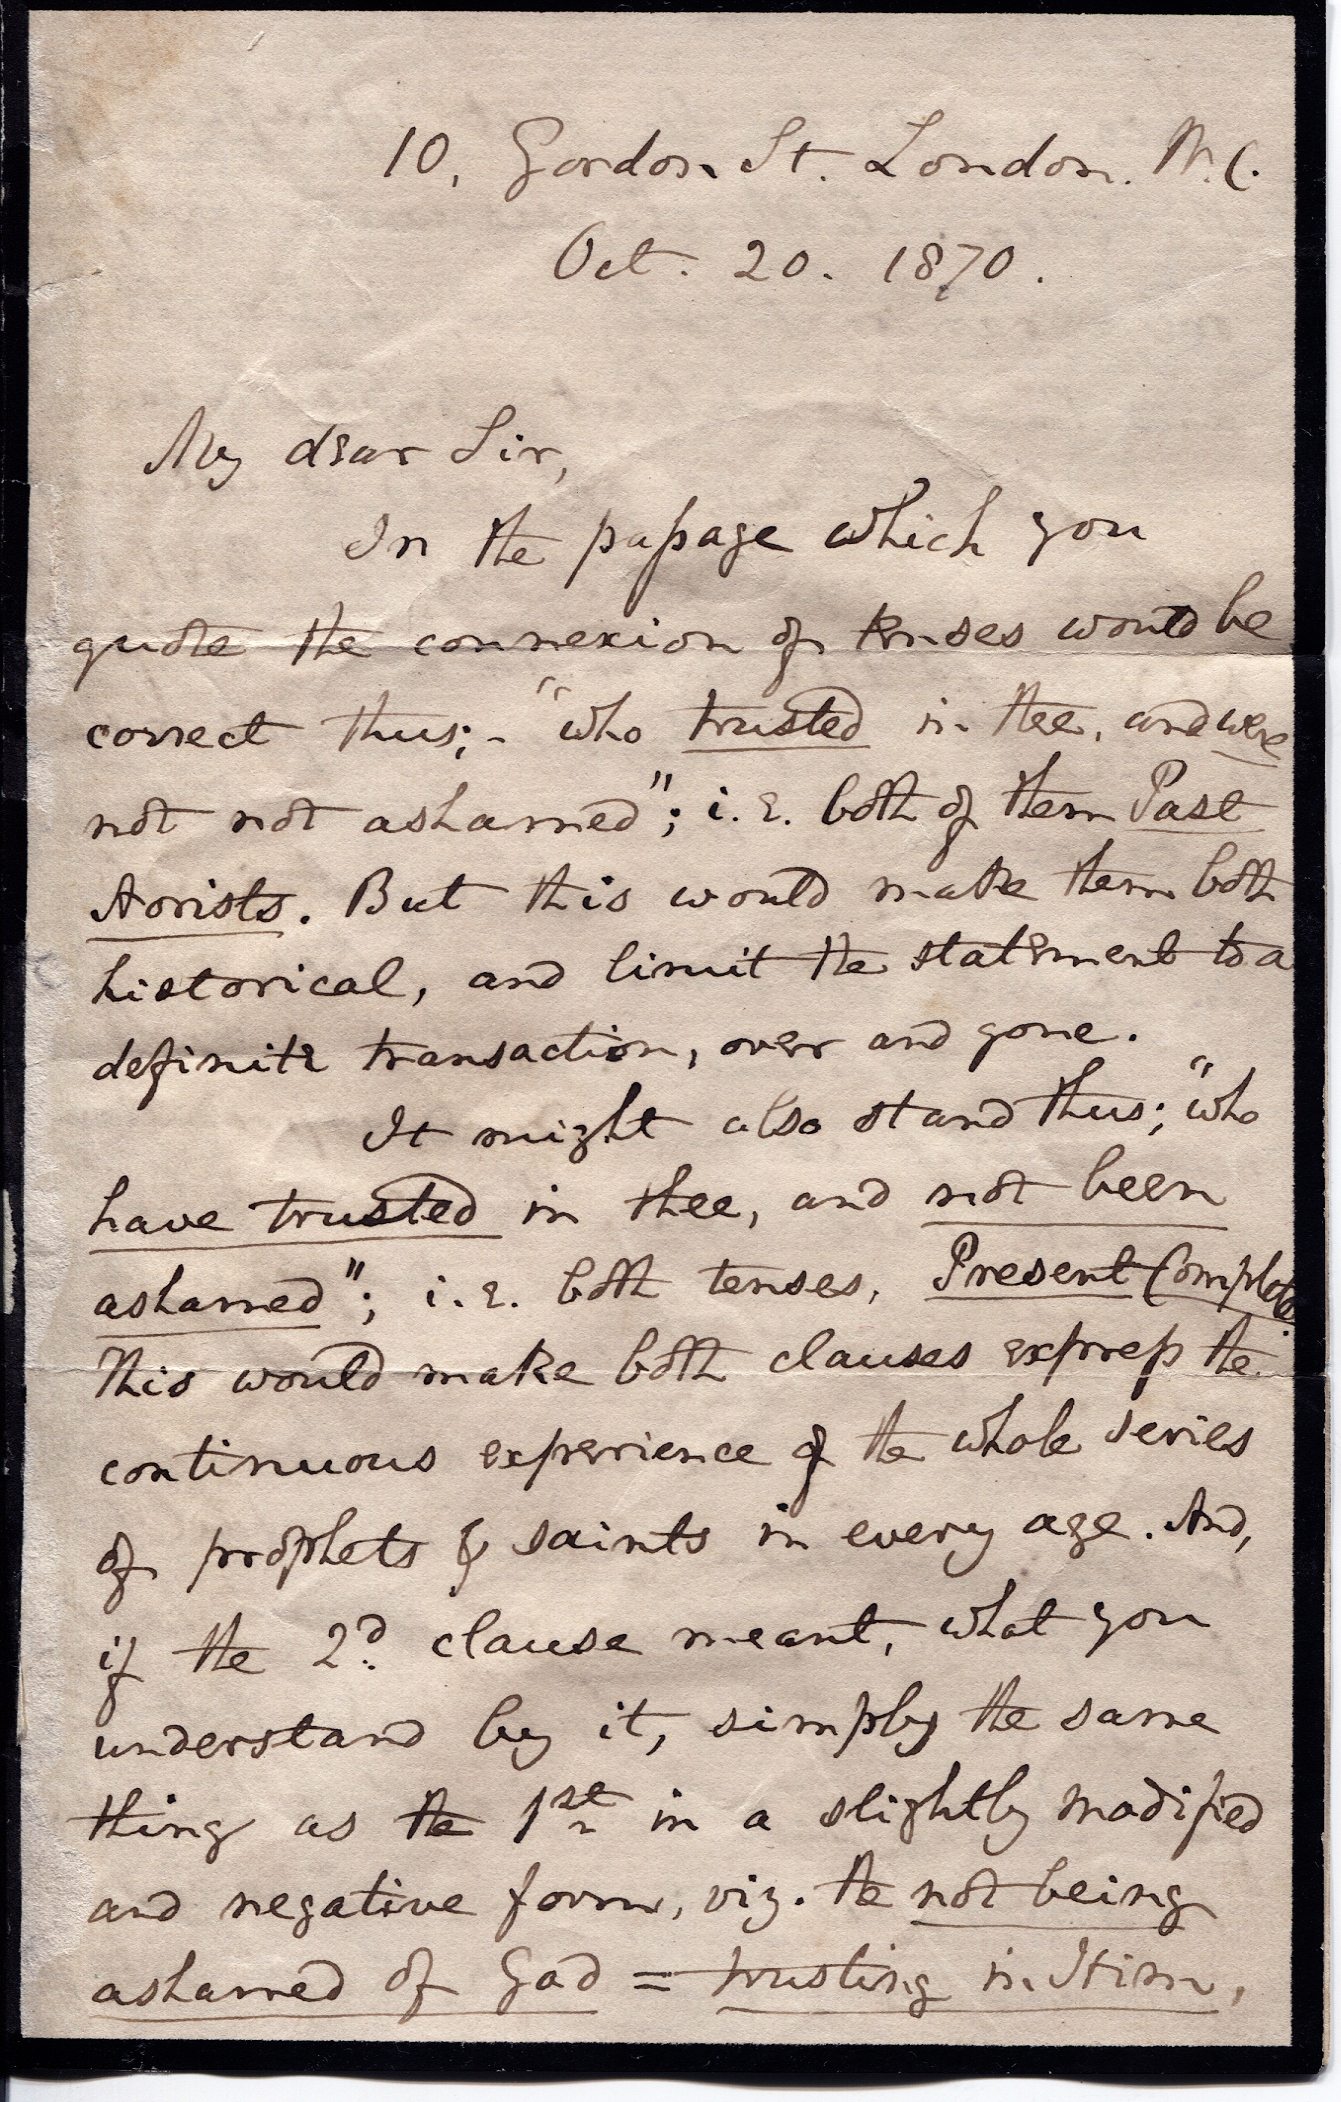 10, Gordon St. London. W.C.
Oct. 20. 1870.
My dear Sir,
In the passage which you
quote the connexion of tenses would be
correct thus;- "who trusted in thee, and were
not not ashamed"; i.e. both of them Past
Aorists. But this would make them both
historical, and limit the statement to a
definite transaction, over and gone.
It might also stand thus; "who
have trusted in thee, and not been
ashamed"; i.e. both tenses, Present Complete.
This would make both clauses express the
continuous experience of the whole series
of prophets & saints in every age. And,
if the 2d. clause meant, what you
understand by it, simply the same
thing as the 1st in a slightly modified
and negative form, viz. the not being
ashamed of God = trusting in Him,